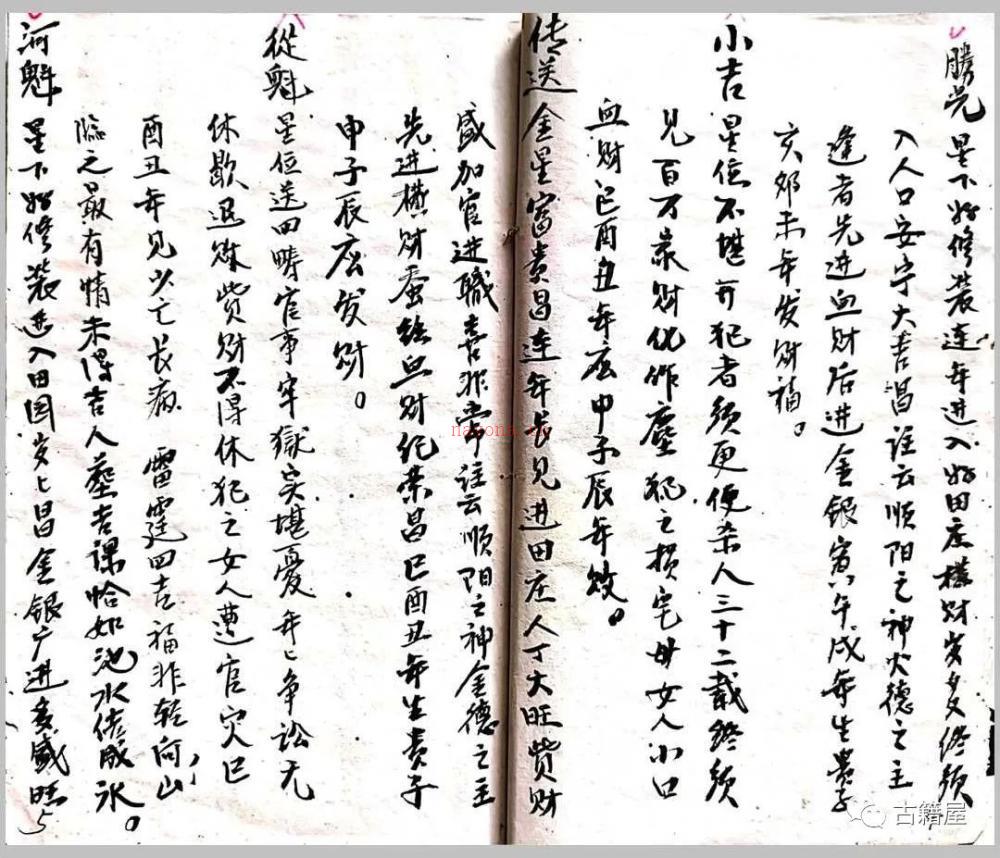 勝光 星下好修装连年进入好田庄横财岁岁终须
入人口安宁大吉昌注云顺阳之神火德之主
逢者先进血财后进金银寅午戌年生贵子
亥卯未年发财福。
小吉 星位不堪开犯者须更便杀人三十二载终须
见百万家财化作尘犯之损宅母女人小口
血财巳酉丑年应申子辰年败。
传送 金星富贵昌连年长见进田庄人丁大旺赀财
盛加官进職喜非常注云顺阳之神金德之主
先进横财蚕丝血财纪荣昌巳酉丑年生贵子
申子辰应发财。
從魁 星位送田畴官事牢獄实堪憂年年争讼无
休歇退败赀财不得休犯之女人遭官灾巳
酉丑年见少亡长病 雷霆四吉福非轻向山
臨之最有情未得吉人塟吉课恰如池水借成冰。
河魁 星下好修装进入田园岁岁昌金银广进多盛旺
navona.cn
古籍屋